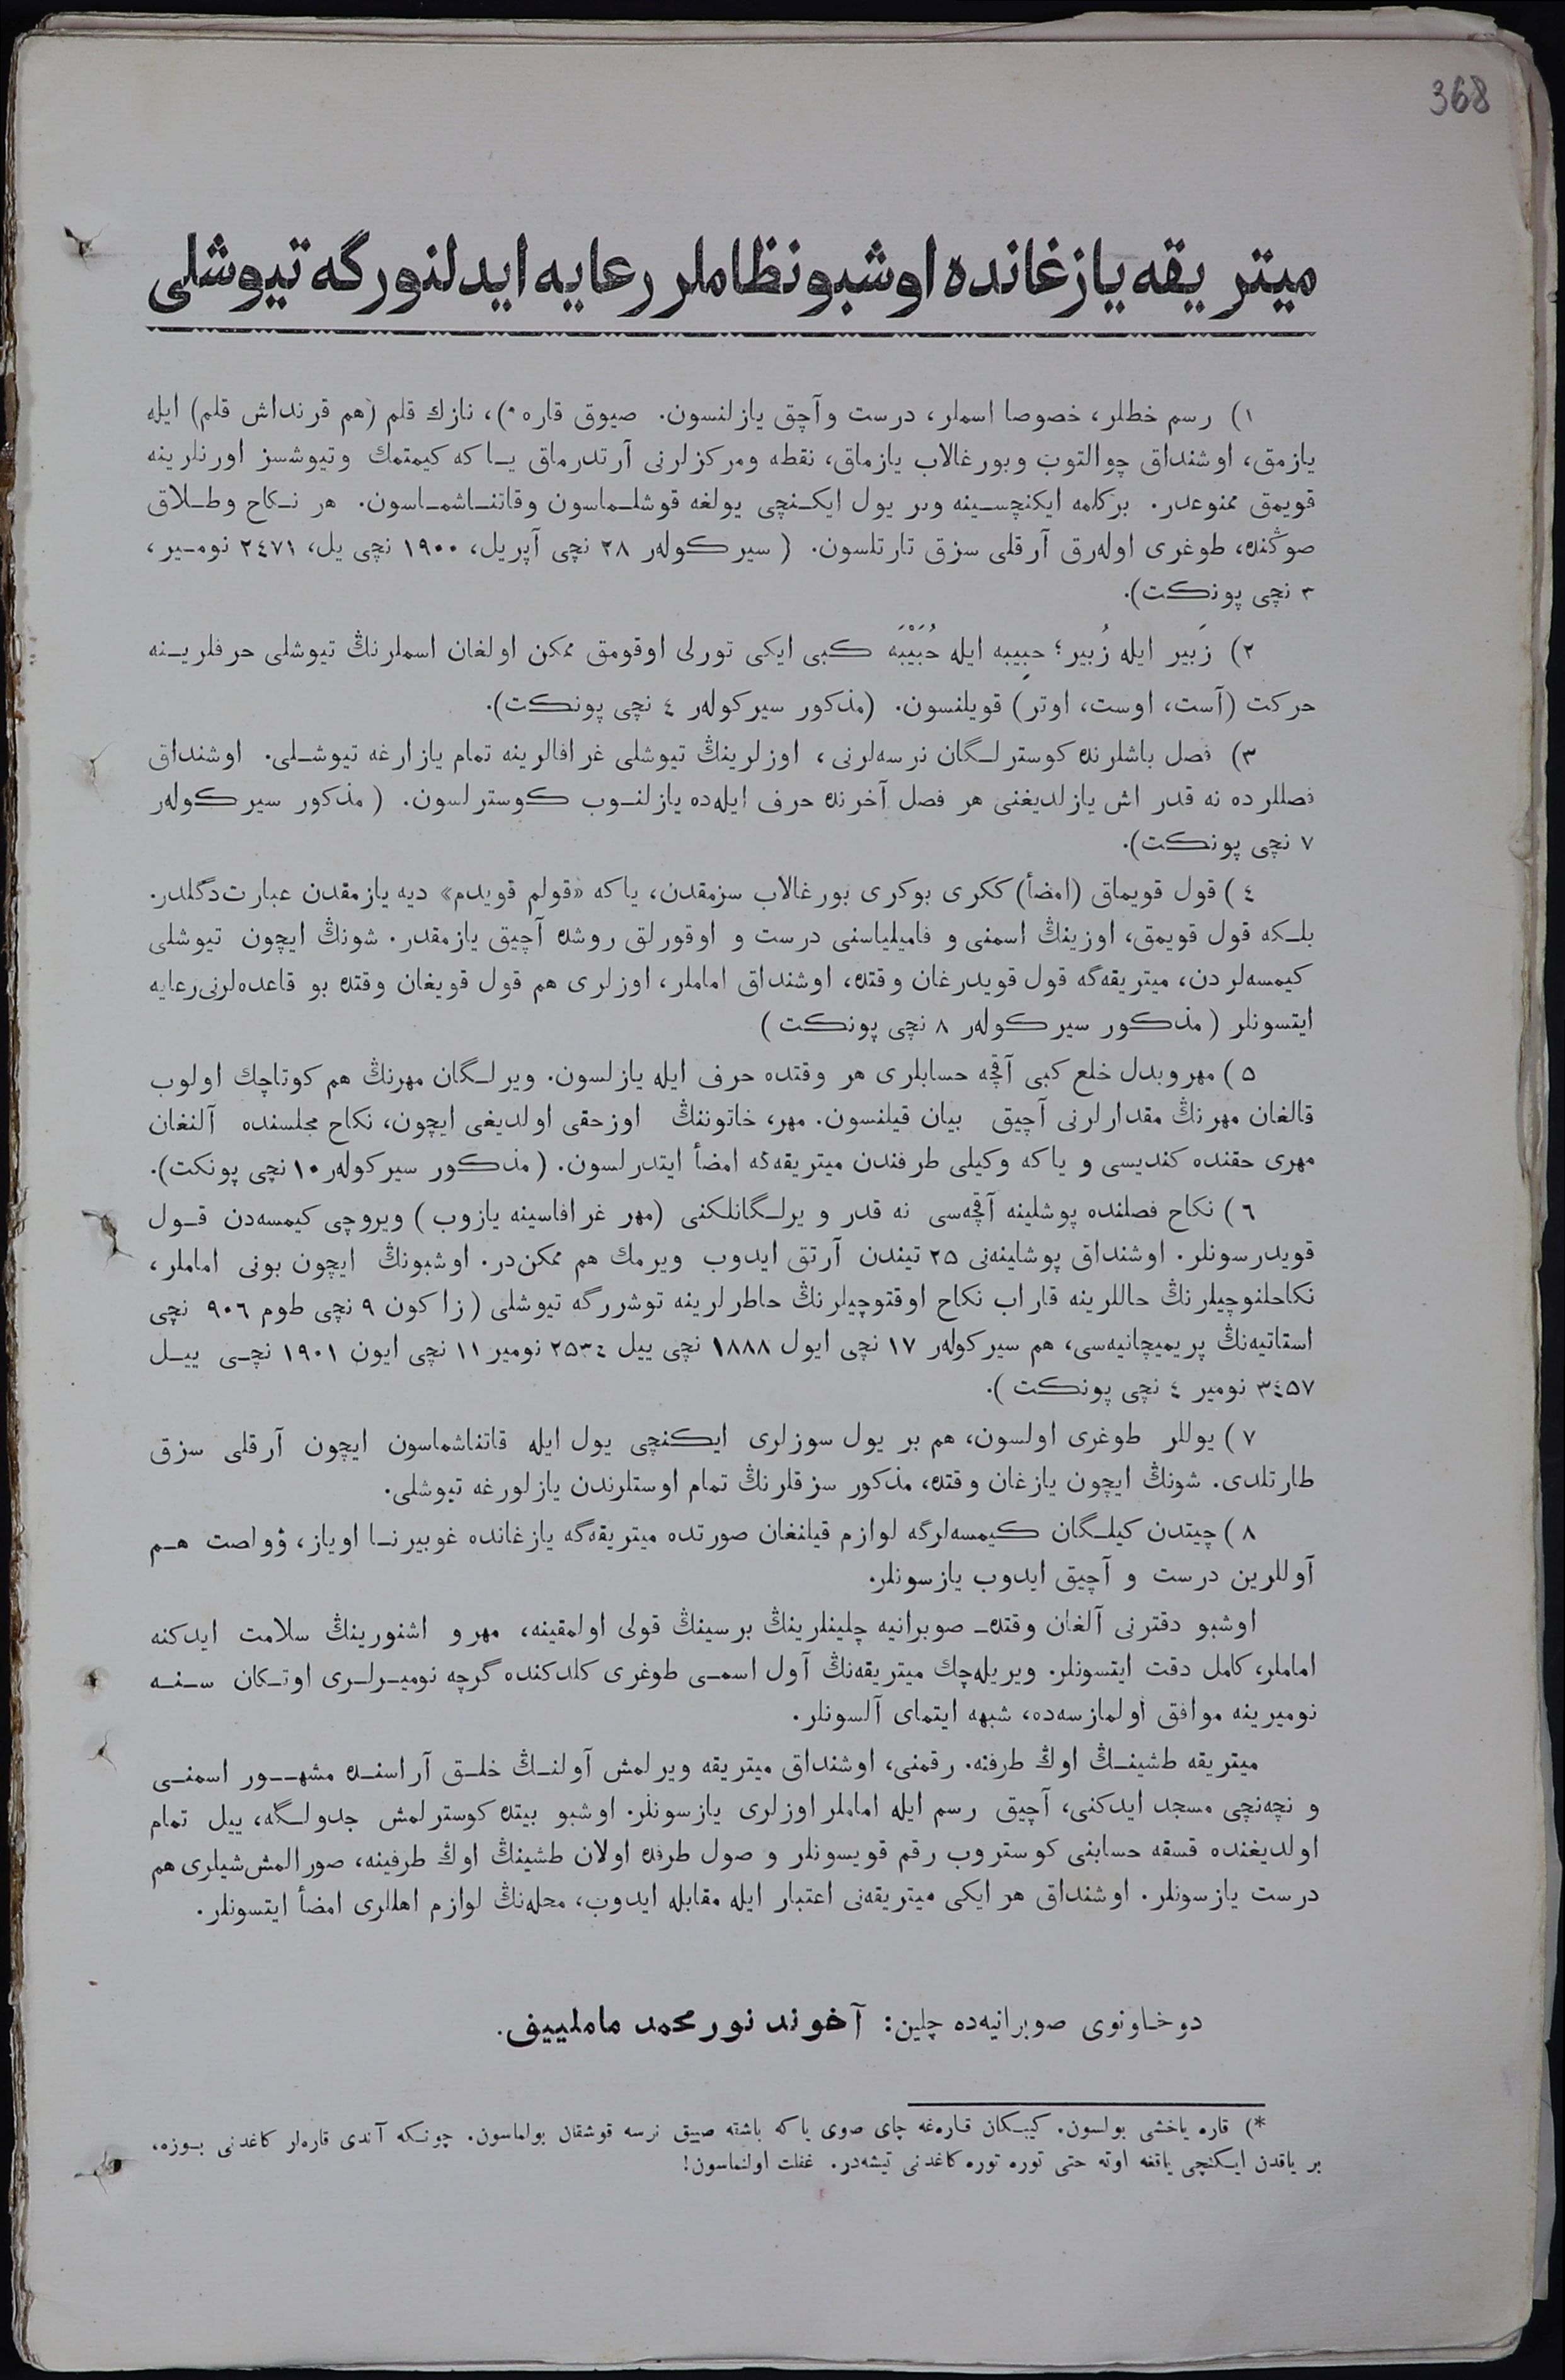 368
ميتريقه يازغانده اوشبو نظاملر رعايه ايدلنورگه تيوشلى
١) رسم خطلر، خصوصا اسملر، درست وآچق يازلنسون. صيوق قاره*)، نازك قلم (هم قرنداش قلم) ايله
يازمق، اوشنداق چوالتوب وبورغالاب يازماق، نقطه ومركزلرنى آرتدرماق يـا كه كيمتمك وتيوشسز اورنلرينه
قويمق ممنوعدر. بركلمه ايكنچسـينه وبر يول ايكـنچى يولغه قوشلـماسون وقاتنـاشمـاسون. هر نـكاح وطـلاق
صوڭنده، طوغرى اولەرق آرقلى سزق تارتلسون. (سيركولەر ٢٨ نچى آپريل، ١٩٠٠ نچى يل، ٢٤٧١ نومـير،
٣ نچى پونكت).
٢) زَبير ايله زُبير؛ حبِيبه ايله حُبَيْبَه كبى ايكى تورلى اوقومق ممكن اولغان اسملرنڭ تيوشلى حرفلريـنه
حركت (آست، اوست، اوتر) قويلنسون. (مذكور سيركولەر ٤ نچى پونكت).
٣) فصل باشلرنده كوسترلـگان نرسەلرنى، اوزلرينڭ تيوشلى غرافالرينه تمام يازارغه تيوشـلى. اوشنداق
فصللرده نه قدر اش يازلديغنى هر فصل آخرنده حرف ايلەده يازلنـوب كوسترلسون. (مذكور سيركولەر
٧ نچى پونكت).
٤) قول قويماق (امضأ) ككرى بوكرى بورغالاب سزمقدن، ياكه «قولم قويدم» ديه يازمقدن عبارت دگلدر.
بلـكه قول قويمق، اوزينڭ اسمنى و فاميلياسنى درست و اوقورلق روشده آچيق يازمقدر. شونڭ ايچون تيوشلى
كيمسەلردن، ميتريقەگه قول قويدرغان وقتده، اوشنداق اماملر، اوزلرى هم قول قويغان وقتده بو قاعدەلرنى رعايه
ايتسونلر (مذكور سيركولەر ٨ نچى پونكت)
٥) مهر وبدل خلع كبى آقچه حسابلرى هر وقتده حرف ايله يازلسون. ويرلـگان مهرنڭ هم كوتاچك اولوب
قالغان مهرنڭ مقدارلرنى آچيق بيان قيلنسون. مهر، خاتوننڭ اوزحقى اولديغى ايچون، نكاح مجلسنده آلنغان
مهرى حقنده كنديسى و ياكه وكيلى طرفندن ميتريقەگه امضأ ايتدرلسون. (مذكور سيركولەر ١٠ نچى پونكت).
٦) نكاح فصلنده پوشلينه آقچەسى نه قدر ويرلـگانلكنى (مهر غرافاسينه يازوب) ويروچى كيمسەدن قـول
قويدرسونلر. اوشنداق پوشلينەنى ٢٥ تيندن آرتق ايدوب ويرمك هم ممكن در. اوشبونڭ ايچون بونى اماملر،
نكاحلنوچيلرنڭ حاللرينه قاراب نكاح اوقتوچيلرنڭ خاطرلرينه توشررگه تيوشلى (زاكون ٩ نچى طوم ٩٠٦ نچى
استاتيەنڭ پريميچانيەسى، هم سيركولەر ١٧ نچى ايول ١٨٨٨ نچى ييل ٢٥٣٤ نومير ١١ نچى ايون ١٩٠١ نچـى ييـل
٣٤٥٧ نومير ٤ نچى پونكت).
٧) يوللر طوغرى اولسون، هم بر يول سوزلرى ايكنچى يول ايله قاتناشماسون ايچون آرقلى سزق
طارتلدى. شونڭ ايچون يازغان وقتده، مذكور سزقلرنڭ تمام اوستلرندن يازلورغه تيوشلى.
٨) چيتدن كيلـگان كيمسەلرگه لوازم قيلنغان صورتده ميتريقەگه يازغانده غوبيرنـا اوياز، ۋولصت هـم
آوللرين درست و آچيق ايدوب يازسونلر.
اوشبو دفترنى آلغان وقتدهـ صوبرانيه چلينلرينڭ برسينڭ قولى اولمقينه، مهر و اشنورينڭ سلامت ايدكنه
اماملر، كامل دقت ايتسونلر. ويريلەچك ميتريقەنڭ آول اسمـى طوغرى كلدكنده گرچه نوميـرلـرى اوتـكان سـنـه
نوميرينه موافق اولمازسەده، شبهه ايتماى آلسونلر.
ميتريقه طشينـڭ اوڭ طرفنه. رقمنى، اوشنداق ميتريقه ويرلمش آولنـڭ خلـق آراسنـده مشهـور اسمنـى
و نچەنچى مسجد ايدكنى، آچيق رسم ايله اماملر اوزلرى يازسونلر. اوشبو بيتده كوسترلمش جدولـگه، ييل تمام
اولديغنده قسقه حسابنى كوستروب رقم قويسونلر و صول طرفده اولان طشينڭ اوڭ طرفينه، صورالمش شيلرى هم
درست يازسونلر. اوشنداق هر ايكى ميتريقەنى اعتبار ايله مقابله ايدوب، محلەنڭ لوازم اهللرى امضأ ايتسونلر.
دوخاونوى صوبرانيەده چلين: آخوند نورمحمد ماملييف.
*) قاره ياخشى بولسون. كيبـكان قارەغه چاى صوى ياكه باشقه صييق نرسه قوشقان بولماسون. چونـكه آندى قارەلر كاغدنى بـوزه،
بر ياقدن ايـكنچى ياققه اوته حتى توره توره كاغدنى تيشەدر. غفلت اولنماسون!